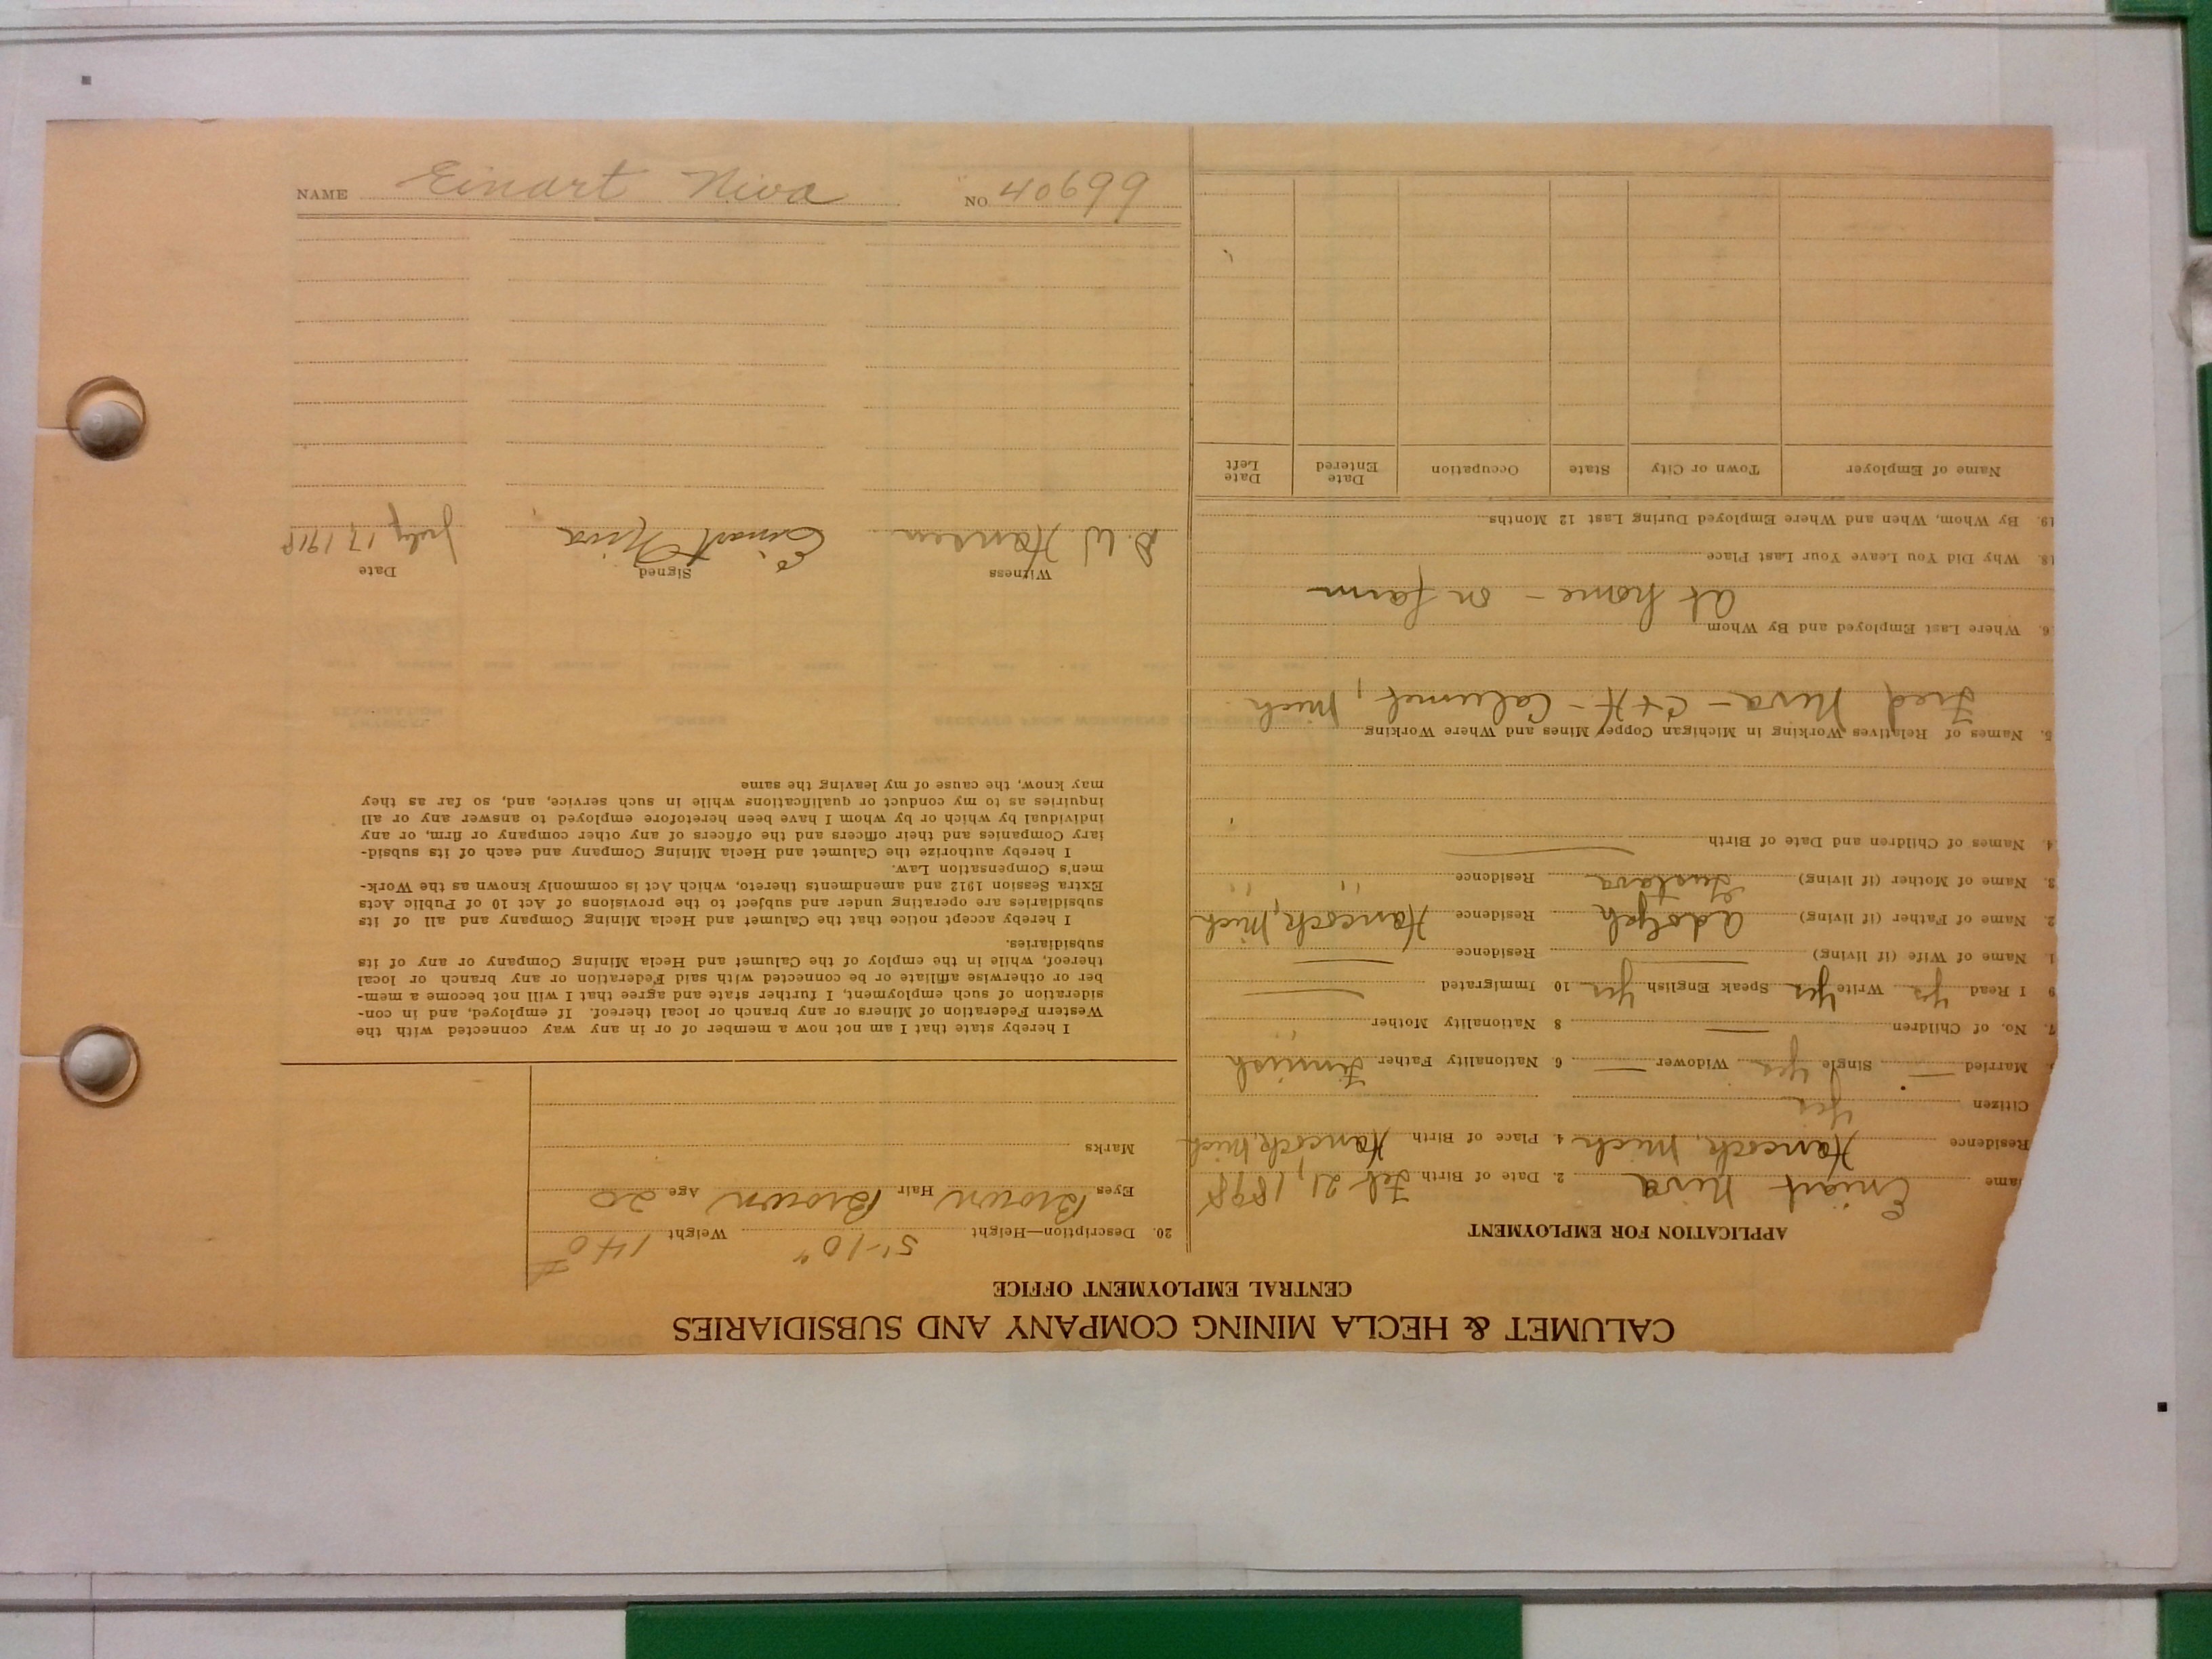 CALUMET & HECLA MINING COMPANY AND SUBSIDIARIES
CENTRAL EMPLOYMENT OFFICE
APPLICATION FOR EMPLOYMENT
ame Eniart Niva 2. Date of Birth Feb 21, 1898
Residence Hancock, Mich. 4. Place of Birth Hancock, Mich
Citizen Yes
Married — Single Yes Widower — 6. Nationality Father Finnish
7. No. of Children — 8 Nationality Mother "
9 I Read Yes Write Yes Speak English Yes 10 Immigrated —
1. Name of Wife (if living) — Residence —
2. Name of Father (if living) Adolph Residence Hancock, Mich
3. Name of Mother (if living) Gustava Residence " "
4. Names of Children and Date of Birth —
5. Names of Relatives Working in Michigan Copper Mines and Where Working
Fred Niva - C + H - Calumet, Mich
6. Where Last Employed and By Whom
At home - on farm
18. Why Did You Leave Your Last Place
19. By Whom, When and Where Employed During Last 12 Months
Name of Employer Town or City State Occupation Date Entered Date Left
20. Description—Height 5'-10" Weight 140
Eyes Brown Hair Brown Age 20
Marks
I hereby state that I am not now a member of or in any way connected with the
Western Federation of Miners or any branch or local thereof. If employed, and in con-
sideration of such employment, I further state and agree that I will not become a mem-
ber or otherwise affiliate or be connected with said Federation or any branch or local
thereof, while in the employ of the Calumet and Hecla Mining Company or any of its
subsidiaries.
I hereby accept notice that the Calumet and Hecla Mining Company and all of its
subsidiaries are operating under and subject to the provisions of Act 10 of Public Acts
Extra Session 1912 and amendments thereto, which Act is commonly known as the Work-
men's Compensation Law.
I hereby authorize the Calumet and Hecla Mining Company and each of its subsid-
iary Companies and their officers and the officers of any other company or firm, or any
individual by which or by whom I have been heretofore employed to answer any or all
inquiries as to my conduct or qualifications while in such service, and, so far as they
may know, the cause of my leaving the same
Witness Signed Date
D. W Hansen Einart Niva July 17 1918
NAME Einart Niva NO. 40699